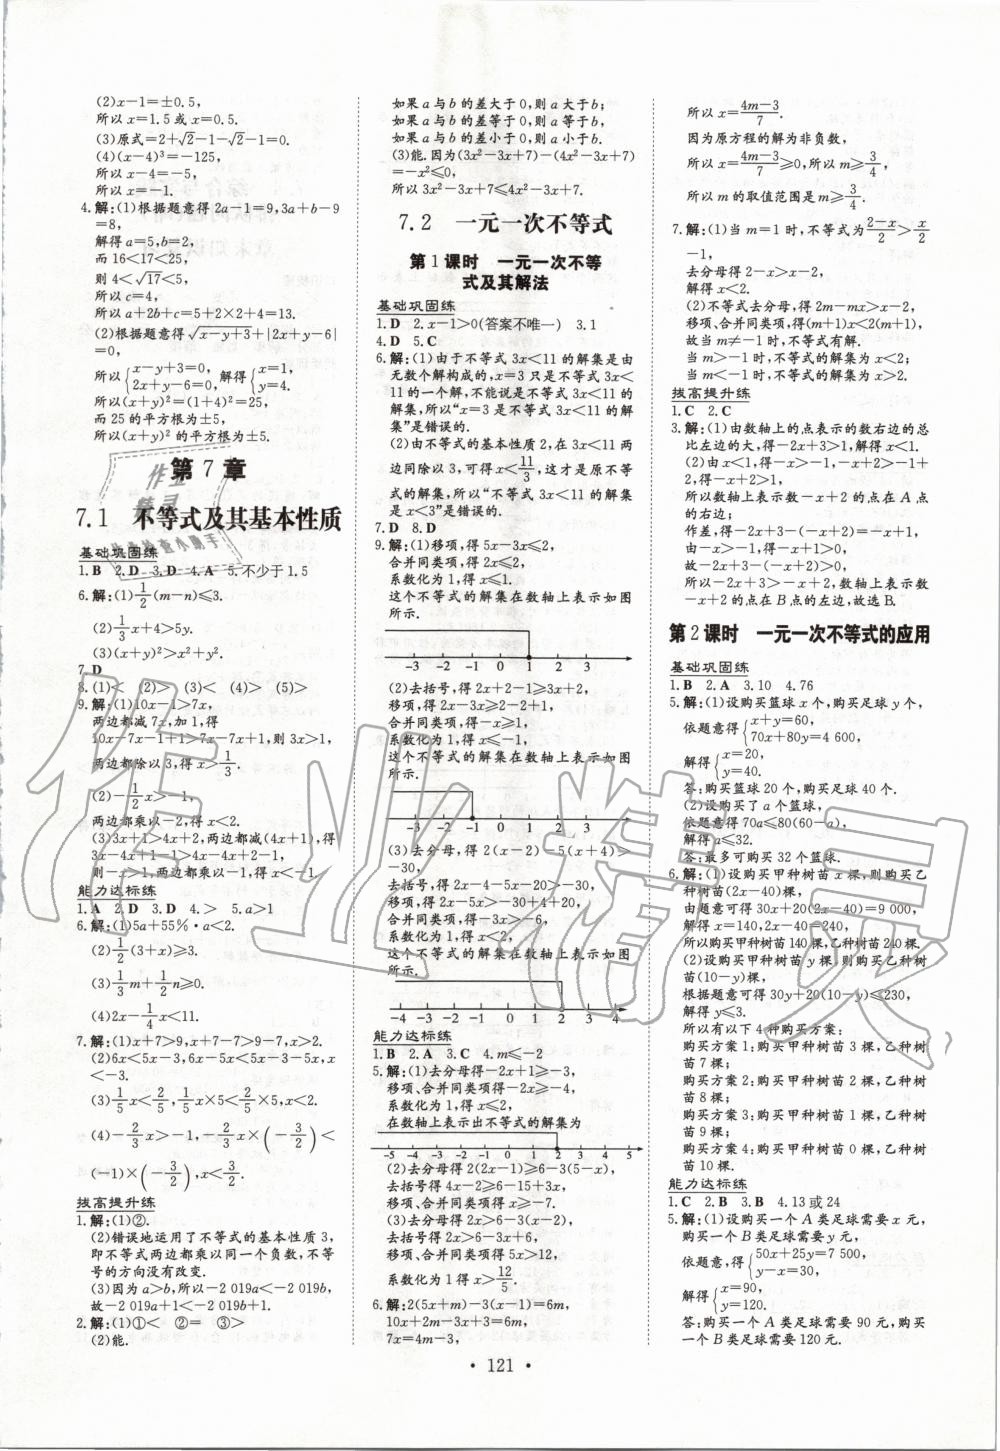 (2)x-1=±0.5,
所以x=1.5或x=0.5.
(3)原式=2+√2-1-√2-1=0.
(4)(x-4)³=-125,
所以x-4=-5,
所以x=-1.
4.解:(1)根据题意得2a-1=9,3a+b-9
=8,
解得a=5,b=2,
而16<17<25,
则4<√17<5,
所以c=4,
所以a+2b+c=5+2×2+4=13.
(2)根据题意得√(x-y+3)+|2x+y-6|
所以{x-y+3=0, 2x+y-6=0,解得{x=1, y=4.
所以(x+y)²=(1+4)²=25,
而25的平方根为±5,
所以(x+y)²的平方根为±5.
第7章
7.1 不等式及其基本性质
基础巩固练
1.B 2.D 3.D 4.A 5.不少于1.5
6.解:(1)1/2(m-n)≤3.
(2)1/3x+4>5y.
(3)(x+y)²>x²+y².
7.D
8.(1)< (2)> (3)< (4)> (5)>
9.解:(1)10x-1>7x,
两边都减7x,加1,得
10x-7x-1+1>7x-7x+1,则3x>1,
两边都除以3,得x>1/3.
(2)-1/2x>-1,
两边都乘以-2,得x<2.
(3)3x+1>4x+2,两边都减(4x+1),得
3x-4x+1-1>4x-4x+2-1,
则-x>1,两边都乘以-1,得x<-1.
能力达标练
1.A 2.D 3.D 4.> 5.a>1
6.解:(1)5a+55%·a<2.
(2)1/2(3+x)≥3.
(3)1/3m+1/2n≥0.
(4)2x-1/4x<11.
7.解:(1)x+7>9,x+7-7>9-7,x>2.
(2)6x<5x-3,6x-5x<5x-3-5x,x
<-3.
(3)1/5x<2/5,1/5x×5<2/5×5,x<2.
(4)-2/3x>-1,-2/3x×(-3/2)<
(-1)×(-3/2),x<3/2.
拔高提升练
1.解:(1)②.
(2)错误地运用了不等式的基本性质3,
即不等式两边都乘以同一个负数,不等
号的方向没有改变.
(3)因为a>b,所以-2 019a<-2 019b,
故-2 019a+1<-2 019b+1.
2.解:(1)①< ②= ③>
(2)能.
如果a与b的差大于0,则a大于b;
如果a与b的差等于0,则a等于b,
如果a与b的差小于0,则a小于b.
(3)能.因为(3x²-3x+7)-(4x²-3x+7)
=-x²≤0,
所以3x²-3x+7≤4x²-3x+7.
7.2 一元一次不等式
第1课时 一元一次不等
式及其解法
基础巩固练
1.D 2.x-1>0(答案不唯一) 3.1
4.D 5.C
6.解:(1)由于不等式3x<11的解集是由
无数个解构成的,x=3只是不等式3x<
11的一个解,不能说是不等式3x<11的
解集,所以“x=3是不等式3x<11的解
集”是错误的.
(2)由不等式的基本性质2,在3x<11两
边同除以3,可得x<11/3,这才是原不等
式的解集,所以“不等式3x<11的解集
是x<3”是错误的.
7.D 8.D
9.解:(1)移项,得5x-3x≤2,
合并同类项,得2x≤2,
系数化为1,得x≤1.
这个不等式的解集在数轴上表示如图
所示.
-3 -2 -1 0 1 2 3
(2)去括号,得2x+2-1≥3x+2,
移项,得2x-3x≥2-2+1,
合并同类项,得-x≥1,
系数化为1,得x≤-1,
这个不等式的解集在数轴上表示如图
所示.
-3 -2 -1 0 1 2 3
(3)去分母,得2(x-2)-5(x+4)>
-30,
去括号,得2x-4-5x-20>-30,
移项,得2x-5x>-30+4+20,
合并同类项,得-3x>-6,
系数化为1,得x<2,
这个不等式的解集在数轴上表示如图
所示.
-4 -3 -2 -1 0 1 2 3 4
能力达标练
1.B 2.A 3.C 4.m≤-2
5.解:(1)去分母得-2x+1≥-3,
移项、合并同类项得-2x≥-4,
系数化为1,得x≤2,
在数轴上表示出不等式的解集为
-5 -4 -3 -2 -1 0 1 2 3 4 5
(2)去分母得2(2x-1)≥6-3(5-x),
去括号得4x-2≥6-15+3x,
移项、合并同类项得x≥-7.
(3)去分母得2x>6-3(x-2),
去括号得2x>6-3x+6,
移项、合并同类项得5x>12,
系数化为1得x>12/5.
6.解:2(5x+m)-3(x-1)=6m,
10x+2m-3x+3=6m,
7x=4m-3,
所以x=(4m-3)/7.
因为原方程的解为非负数,
所以x=(4m-3)/7≥0,所以m≥3/4,
所以m的取值范围是m≥3/4.
7.解:(1)当m=1时,不等式为(2-x)/2>x/2
-1,
去分母得2-x>x-2,
解得x<2.
(2)不等式去分母,得2m-mx>x-2,
移项、合并同类项,得(m+1)x<2(m+1),
故当m≠-1时,不等式有解.
当m>-1时,不等式的解集为x<2;
当m<-1时,不等式的解集为x>2.
拔高提升练
1.C 2.C
3.解:(1)由数轴上的点表示的数右边的总
比左边的大,得-2x+3>1,解得x<1.
(2)由x<1,得-x>-1.-x+2>-1+
2,解得-x+2>1,
所以数轴上表示数-x+2的点在A点
的右边;
作差,得-2x+3-(-x+2)=-x+1,
由-x>-1,得-x+1>0,
故-2x+3-(-x+2)>0,
所以-2x+3>-x+2,数轴上表示数
-x+2的点在B点的左边,故选B.
第2课时 一元一次不等式的应用
基础巩固练
1.B 2.A 3.10 4.76
5.解:(1)设购买篮球x个,购买足球y个,
依题意得{x+y=60, 70x+80y=4 600,
解得{x=20, y=40.
答:购买篮球20个,购买足球40个.
(2)设购买了a个篮球,
依题意得70a≤80(60-a),
解得a≤32.
答:最多可购买32个篮球.
6.解:(1)设购买甲种树苗x棵,则购买乙
种树苗(2x-40)棵,
由题意可得30x+20(2x-40)=9 000,
解得x=140,2x-40=240,
所以购买甲种树苗140棵,乙种树苗240棵.
(2)设购买甲种树苗y棵,则购买乙种
树苗(10-y)棵,
根据题意可得30y+20(10-y)≤230,
解得y≤3.
所以有以下4种购买方案:
购买方案1:购买甲种树苗3棵,乙种树
苗7棵;
购买方案2:购买甲种树苗2棵,乙种树
苗8棵;
购买方案3:购买甲种树苗1棵,乙种树
苗9棵;
购买方案4:购买甲种树苗0棵,乙种树
苗10棵.
能力达标练
1.C 2.B 3.B 4.13或24
5.解:(1)设购买一个A类足球需要x元,
购买一个B类足球需要y元,
依题意,得{50x+25y=7 500, y-x=30,
解得{x=90, y=120.
答:购买一个A类足球需要90元,购买
一个B类足球需要120元.
·121·
作业精灵
作业
精灵
作业检查小助手